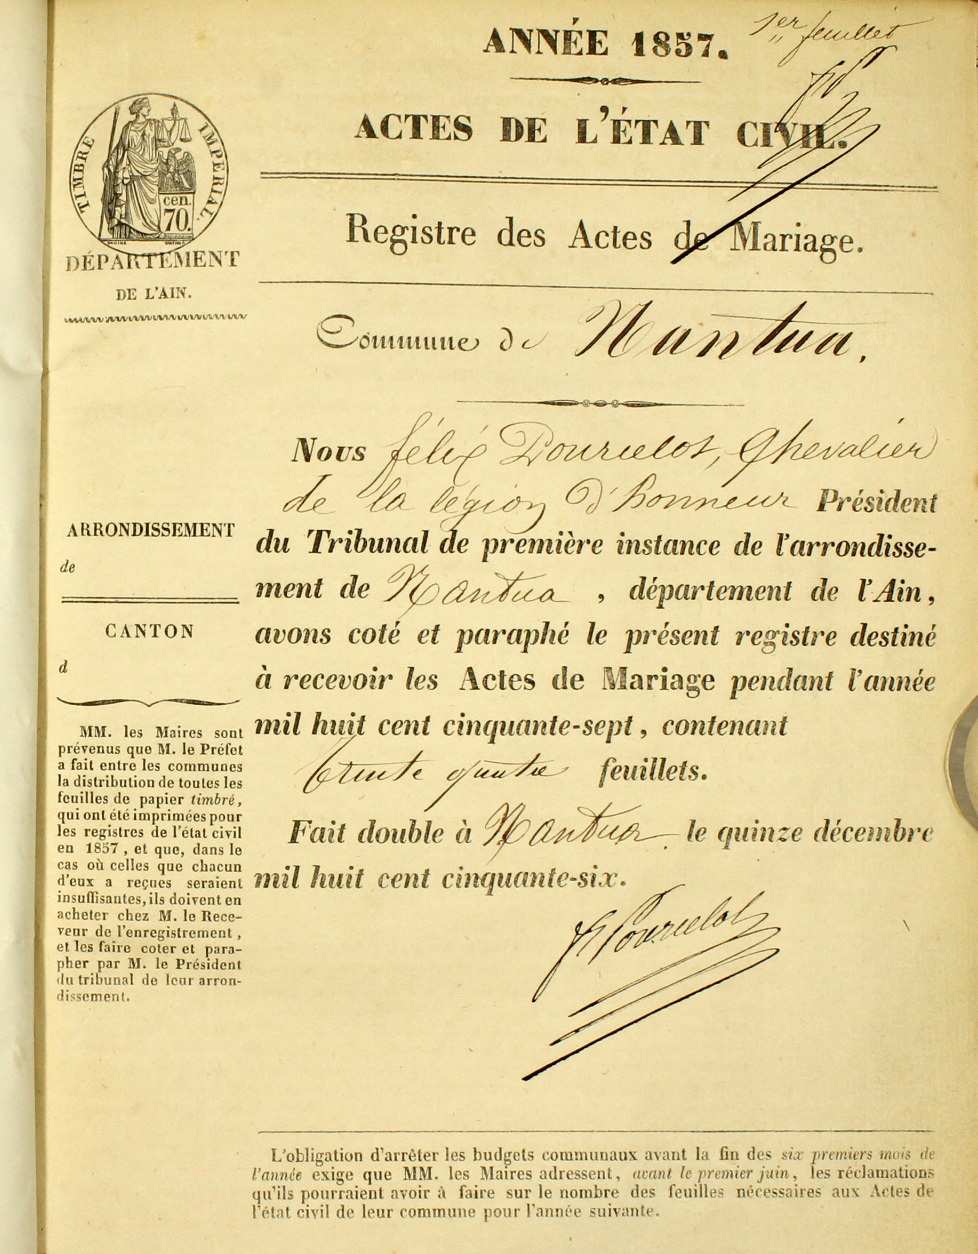 1er feuillet
ANNÉE 1857.
ACTES DE L'ÉTAT CIVIL.
TIMBRE IMPÉRIAL.
cen.
70.
DÉPARTEMENT
DE L'AIN.
Registre des Actes de Mariage.
Commune de Nantua.
Nous félix Pourcelot, Chevalier
de la légion d'honneur Président
du Tribunal de première instance de l'arrondisse-
ment de Nantua, département de l'Ain,
avons coté et paraphé le présent registre destiné
à recevoir les Actes de Mariage pendant l'année
mil huit cent cinquante-sept, contenant
trente quatre feuillets.
Fait double à Nantua. le quinze décembre
mil huit cent cinquante-six.
f Pourcelot
ARRONDISSEMENT
de
CANTON
d
MM. les Maires sont
prévenus que M. le Préfet
a fait entre les communes
la distribution de toutes les
feuilles de papier timbré,
qui ont été imprimées pour
les registres de l'état civil
en 1857, et que, dans le
cas où celles que chacun
d'eux a reçues seraient
insuffisantes, ils doivent en
acheter chez M. le Rece-
veur de l'enregistrement,
et les faire coter et para-
pher par M. le Président
du tribunal de leur arron-
dissement.
L'obligation d'arrêter les budgets communaux avant la fin des six premiers mois de
l'année exige que MM. les Maires adressent, avant le premier juin, les réclamations
qu'ils pourraient avoir à faire sur le nombre des feuilles nécessaires aux Actes de
l'état civil de leur commune pour l'année suivante.